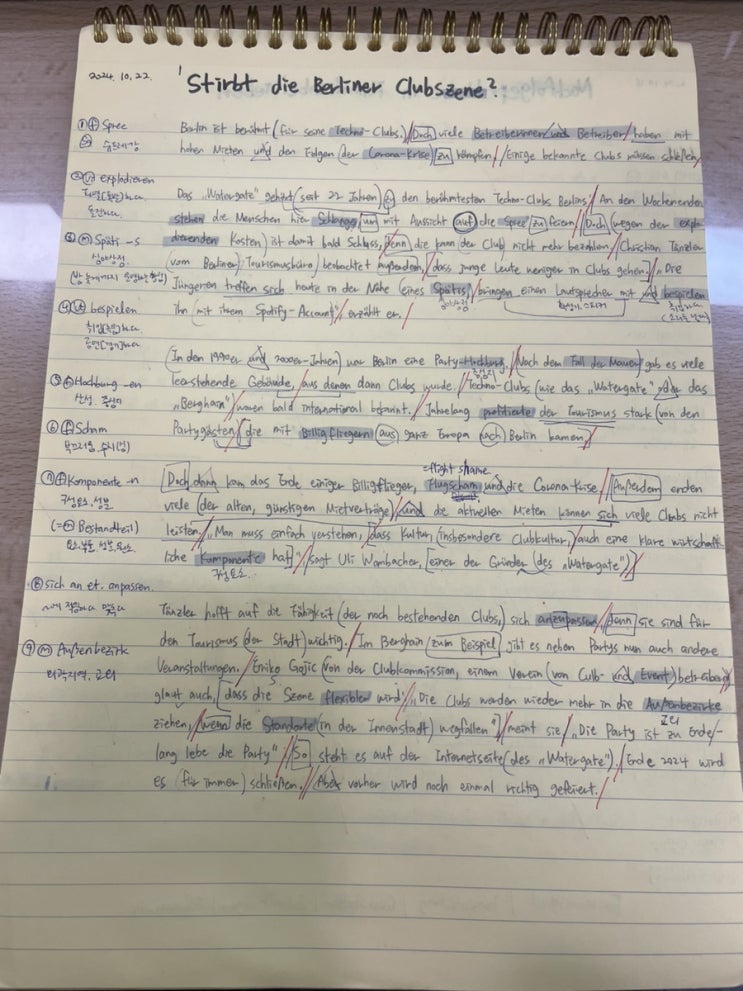 2024. 10. 22.
'Stirbt die Berliner Clubszene?
① ⓕ Spree
Berlin ist berühmt (für seine Techno-Clubs.) Doch viele Betreiberinnen und Betreiber haben mit
슈프레강
hohen Mieten und den Folgen (der Corona-Krise) zu kämpfen. Einige bekannte Clubs müssen schließen.
② explodieren
Das „Watergate" gehört (seit 22 Jahren) zu den berühmtesten Techno-Clubs Berlins. An den Wochenenden
stehen die Menschen hier Schlange um mit Aussicht auf die Spree zu feiern. Doch (wegen der explo-
③ ⓜ Späti -s
dierenden Kosten) ist damit bald Schluss, denn die kann der Club nicht mehr bezahlen. Christian Tänzler
심야상점
(vom Berliner Tourismusbüro) beobachtet außerdem, dass junge Leute weniger in Clubs gehen. „Die
Jüngeren treffen sich heute in der Nähe (eines Spätis), bringen einen Lautsprecher mit und bespielen
심야상점
④ bespielen
ihn (mit ihrem Spotify-Account)" erzählt er.
(In den 1990er und 2000er-Jahren) war Berlin eine Party-Hochburg. Nach dem Fall der Mauer gab es viele
⑤ ⓕ Hochburg -en
leerstehende Gebäude, aus denen dann Clubs wurde. Techno-Clubs (wie das „Watergate" oder das
„Berghain") waren bald international bekannt. Jahrelang profitierte der Tourismus stark (von den
⑥ ⓕ Scham
Partygästen), die mit Billigfliegern aus ganz Europa nach Berlin kamen.
=flight shame
⑦ ⓕ Komponente -n
Doch dann kam das Ende einiger Billigflieger, Flugscham und die Corona-Krise. Außerdem enden
구성요소, 성분
viele (der alten, günstigen Mietverträge) und die aktuellen Mieten können sich viele Clubs nicht
(=ⓜ Bestandteil)
leisten. „Man muss einfach verstehen, dass Kultur, (insbesondere Clubkultur,) auch eine klare wirtschaft
liche Komponente hat" sagt Uli Wombacher, [einer der Gründer (des „Watergate")].
구성요소
⑧ sich an et. anpassen.
Tänzler hofft auf die Fähigkeit (der noch bestehenden Clubs,) sich anzupassen, denn sie sind für
den Tourismus (der Stadt) wichtig. Im Berghain zum Beispiel gibt es neben Partys nun auch andere
⑨ ⓜ Außenbezirk
Veranstaltungen. Emiko Gejic (von der Clubcommission, einem Verein (von Culb- und Event) betreibern)
외곽지역, 교외
glaut auch, dass die Szene flexibler wird. „Die Clubs werden wieder mehr in die Außenbezirke
ziehen, wenn die Standorte (in der Innenstadt) wegfallen" meint sie. „Die Party ist zu Ende/-
lang lebe die Party" So steht es auf der Internetseite (des „Watergate"). Ende 2024 wird
es (für immer) schließen. Aber vorher wird noch einmal richtig gefeiert.